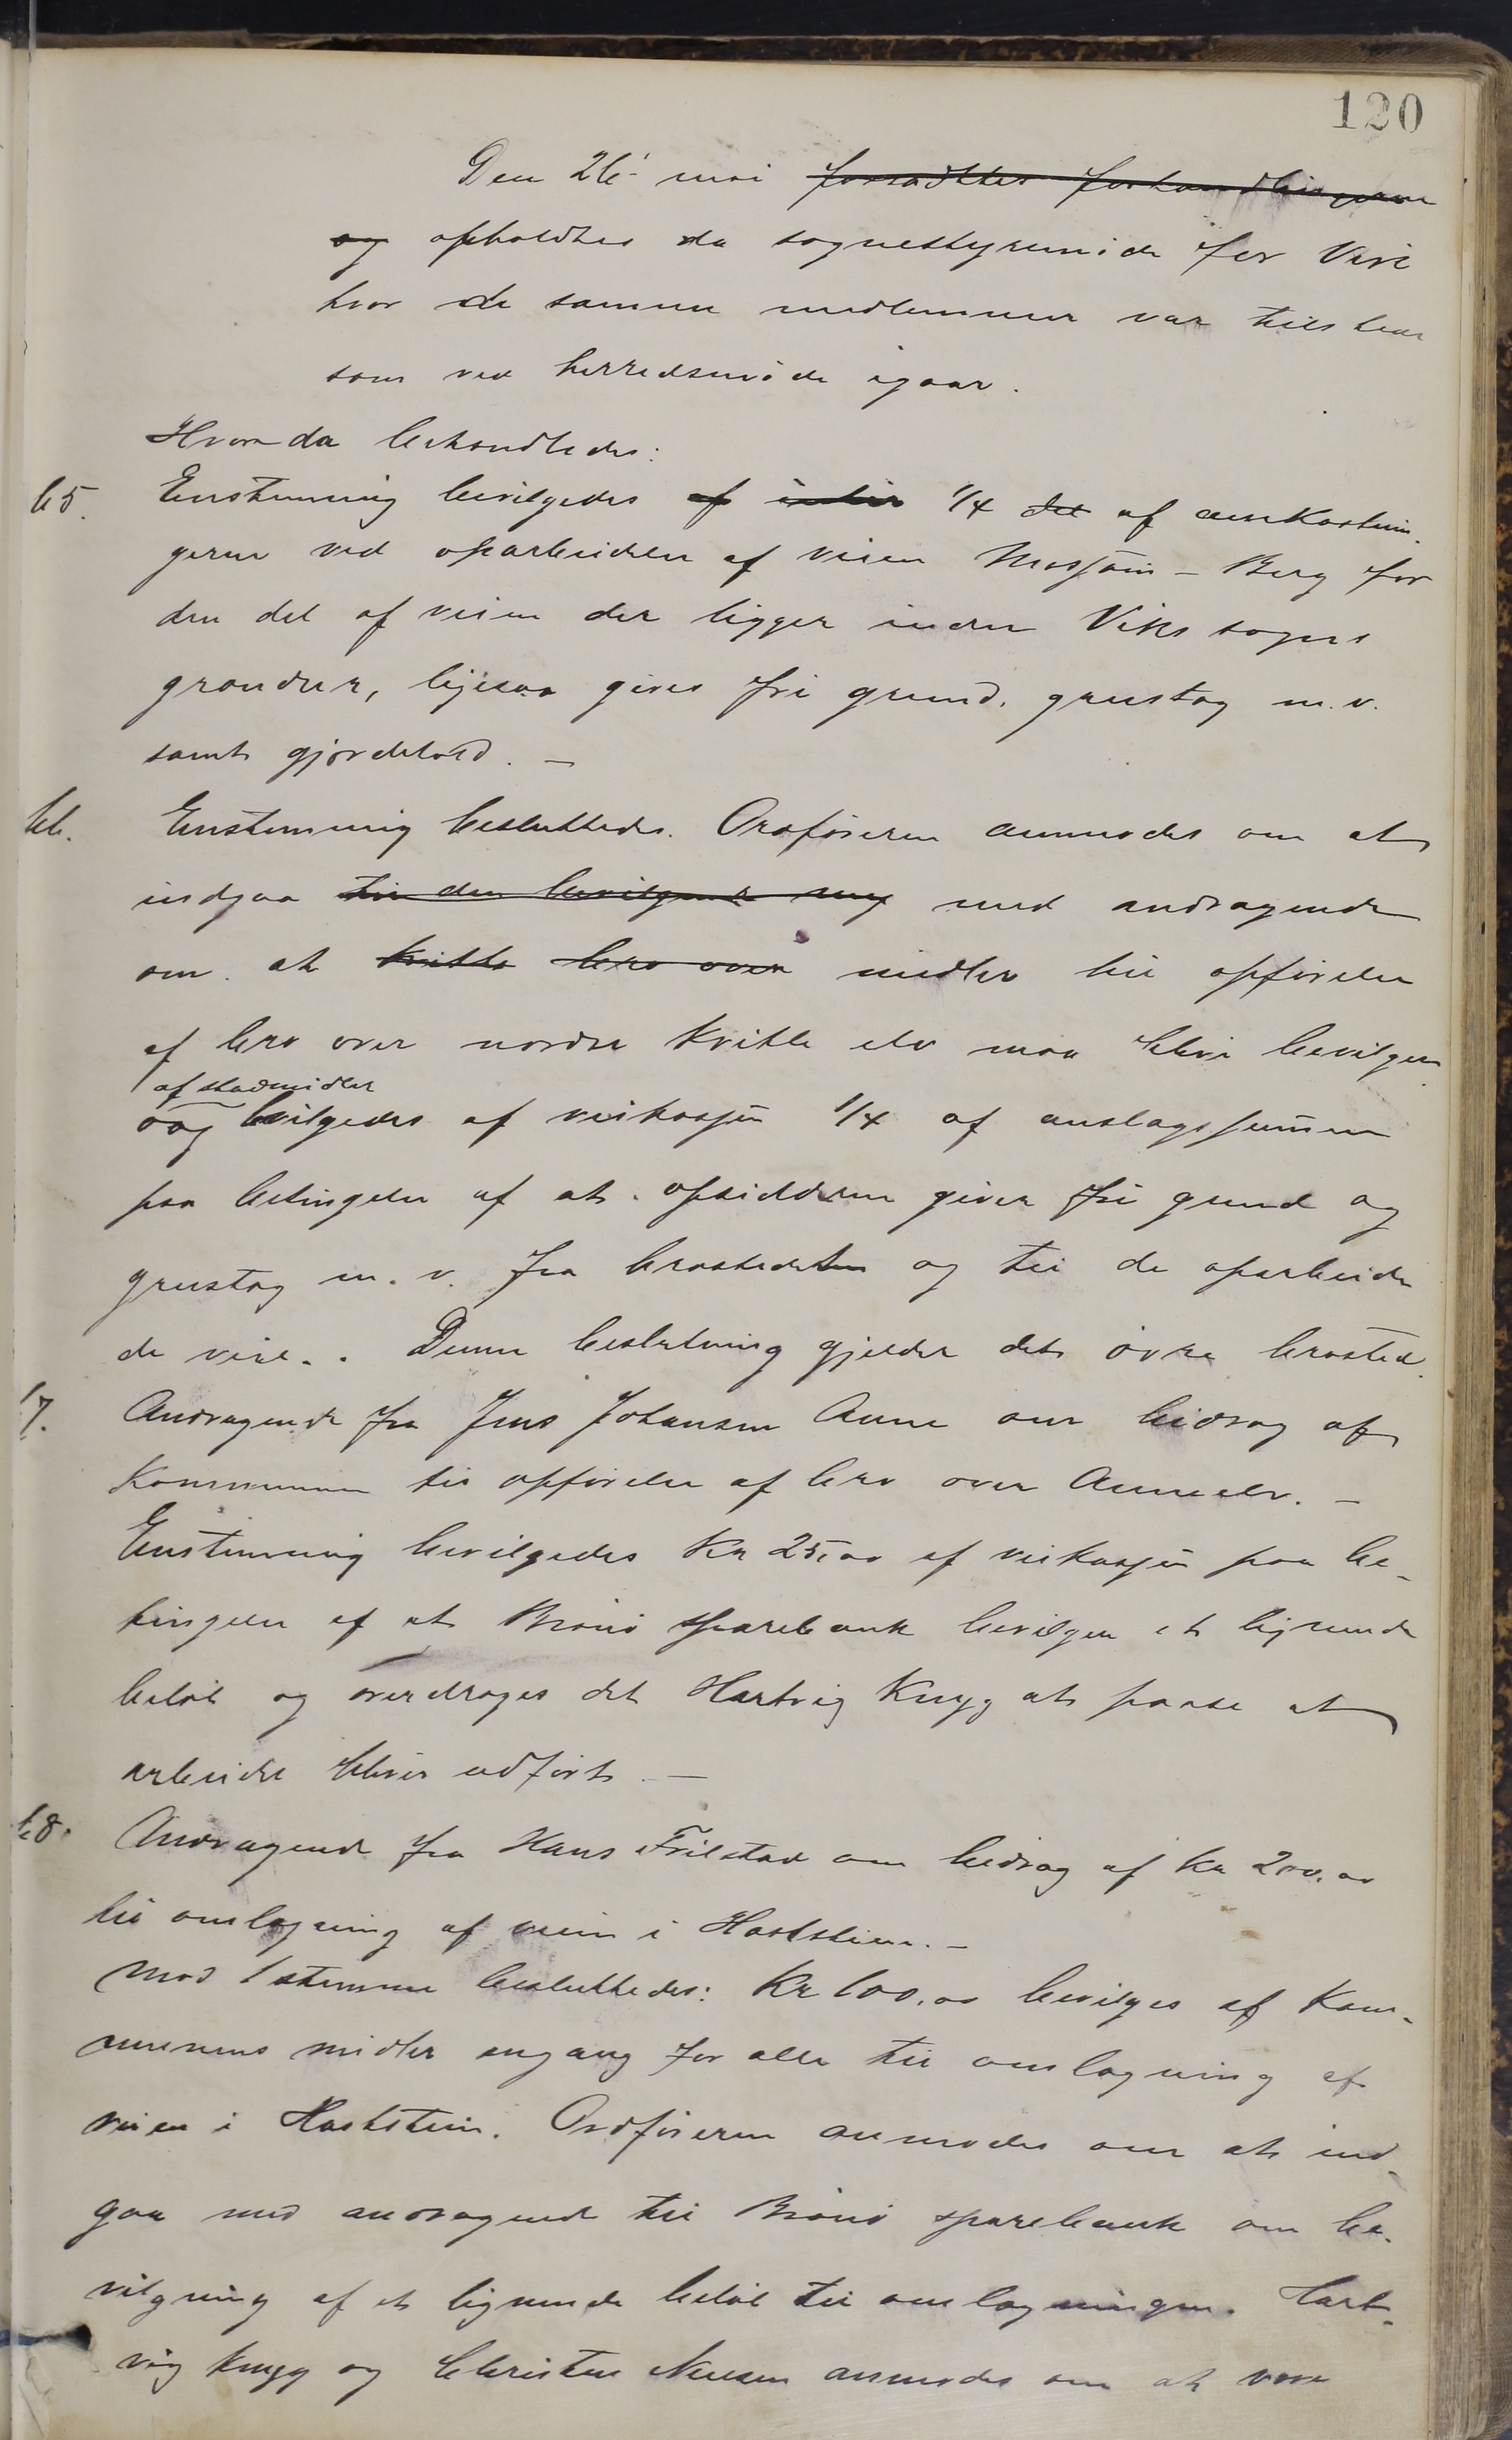 120
Den 26' mai forsattes forhandlingerne
og opholdtes da sognestyremöde for Vik
hvor de samme medlemmer var tilstede
som ved herredsmöde igaar.
Hvor da behandledes:
65. Enstemmig bevilgedes af 1/4 det af omkostnin-
gerne ved oparbeidelse af veien Mosjöen - Berg for
den del af veien der ligger inden Viks sogns
grændser, ligesaa gives fri grund, grustag m.v.
samt gjærdehold. —
66. Enstemmig besluttedes. Ordföreren anmodes om at
indgaa til den bevilgende myg med andragende
om at Kvitle bro over midler til opförelse
af bro over nordre Kvitle elv maa blive bevilget
af stadsmidler
og bevilgedes af veikassen 1/4 af anslagssummen
paa betingelse af at opsidderne giver fri grund og
grustag m. v. fra brostedet og til de oparbeide
de veie. Denne beslutning gjelder det övre brosted.
67. Andragende fra Jens Johansen Aune om bidrag af
Kommunen til opförelse af bro over Auneelv. —
Enstemmig bevilgedes Kr 25,00 af veikassen paa be-
tingelse af at Brönö sparebank bevilger et lignende
belöb og overdrages det Hartvig Krygg at paase at
arbeidet bliver udfört. —
68. Andragende fra Hans Trilstad om bidrag af Kr 200,00
til omlægning af veien i Hartstein. —
Mod 1 stemme besluttedes: Kr 100,00 bevilges af Kom-
munens midler engang for alle til omlægning af
veien i Hartstein. Ordföreren anmodes om at ind-
gaa med andragende til Brönö sparebank om be-
vilgning af et lignende belöb til omlægningen. Hart-
vig Krygg og Christen Nilsen anmodes om at være